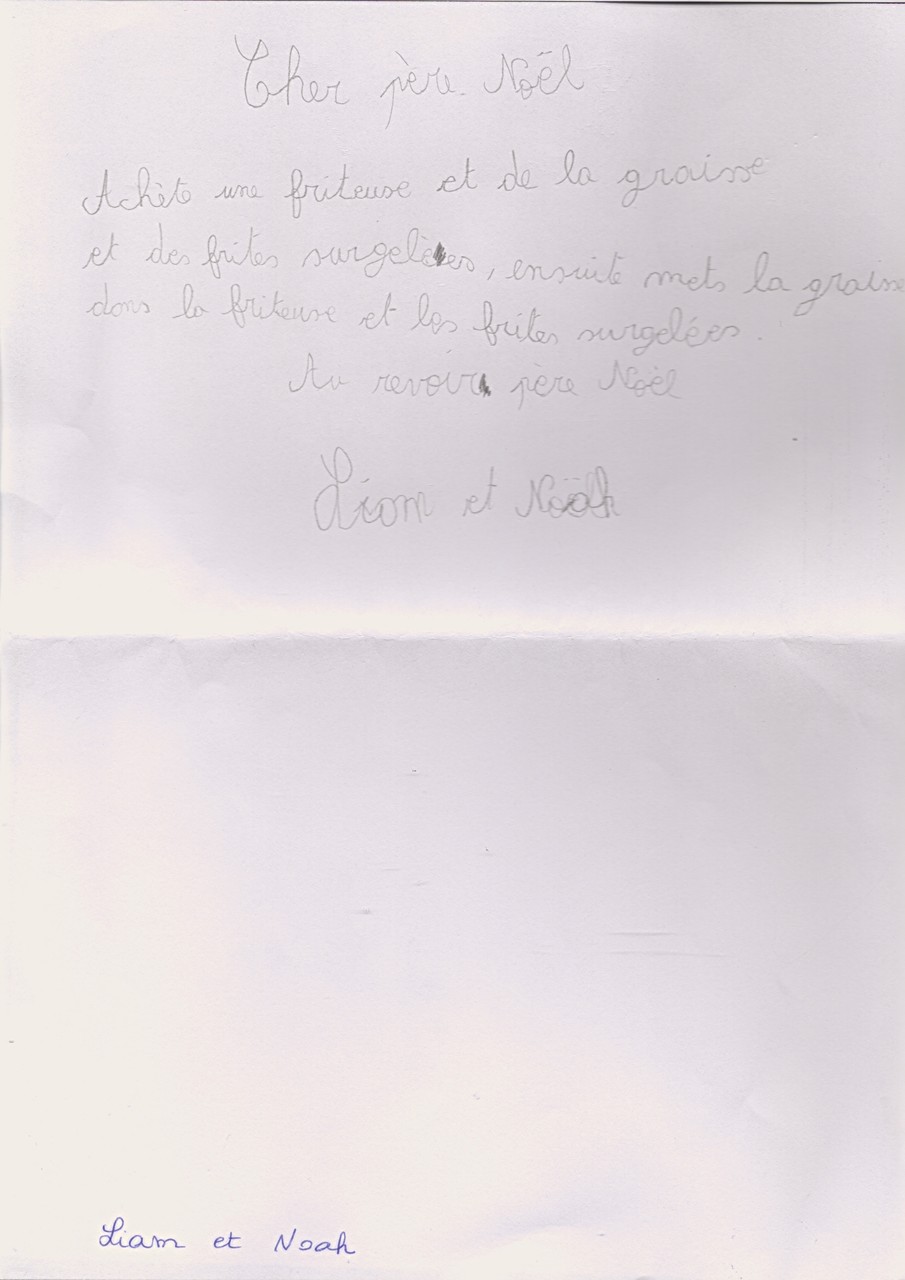 Cher père Noël
Achète une friteuse et de la graisse
et des frites surgelées, ensuite mets la graisse
dans la friteuse et les frites surgelées.
Au revoir père Noël
Liam et Noah
Liam et Noah